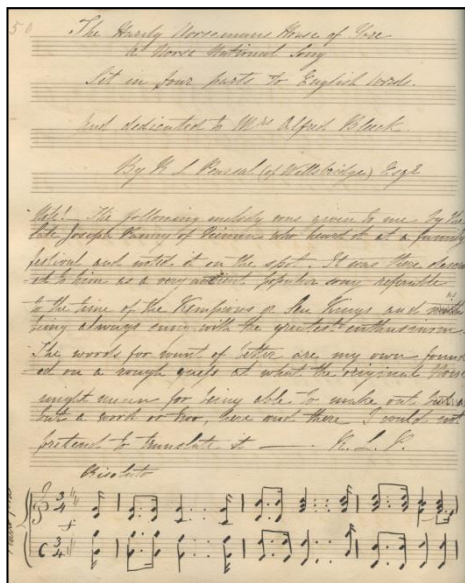 50
The Hardy Norsemans House of Yore
A Norse National Song
Set in four parts to English words.
and dedicated to Mrs Alfred Bleeck
By R L Pearsal (of Willsbridge) Esqr
Note! The following melody was given to me by the
late Joseph Panny of Vienna who heard it at a family
festival and noted it on the spot. It was there descri
ed to him as a very ancient popular song referable
to the time of the Kempions or Sea Kings and as
being always sung with the greatest enthusiasm
The words for want of better are my own found
ed on a rough guess at what the original Norse
might mean for being able to make out but
but a word or two, here and there I could not
pretend to translate it — R. L. P.
Risoluto